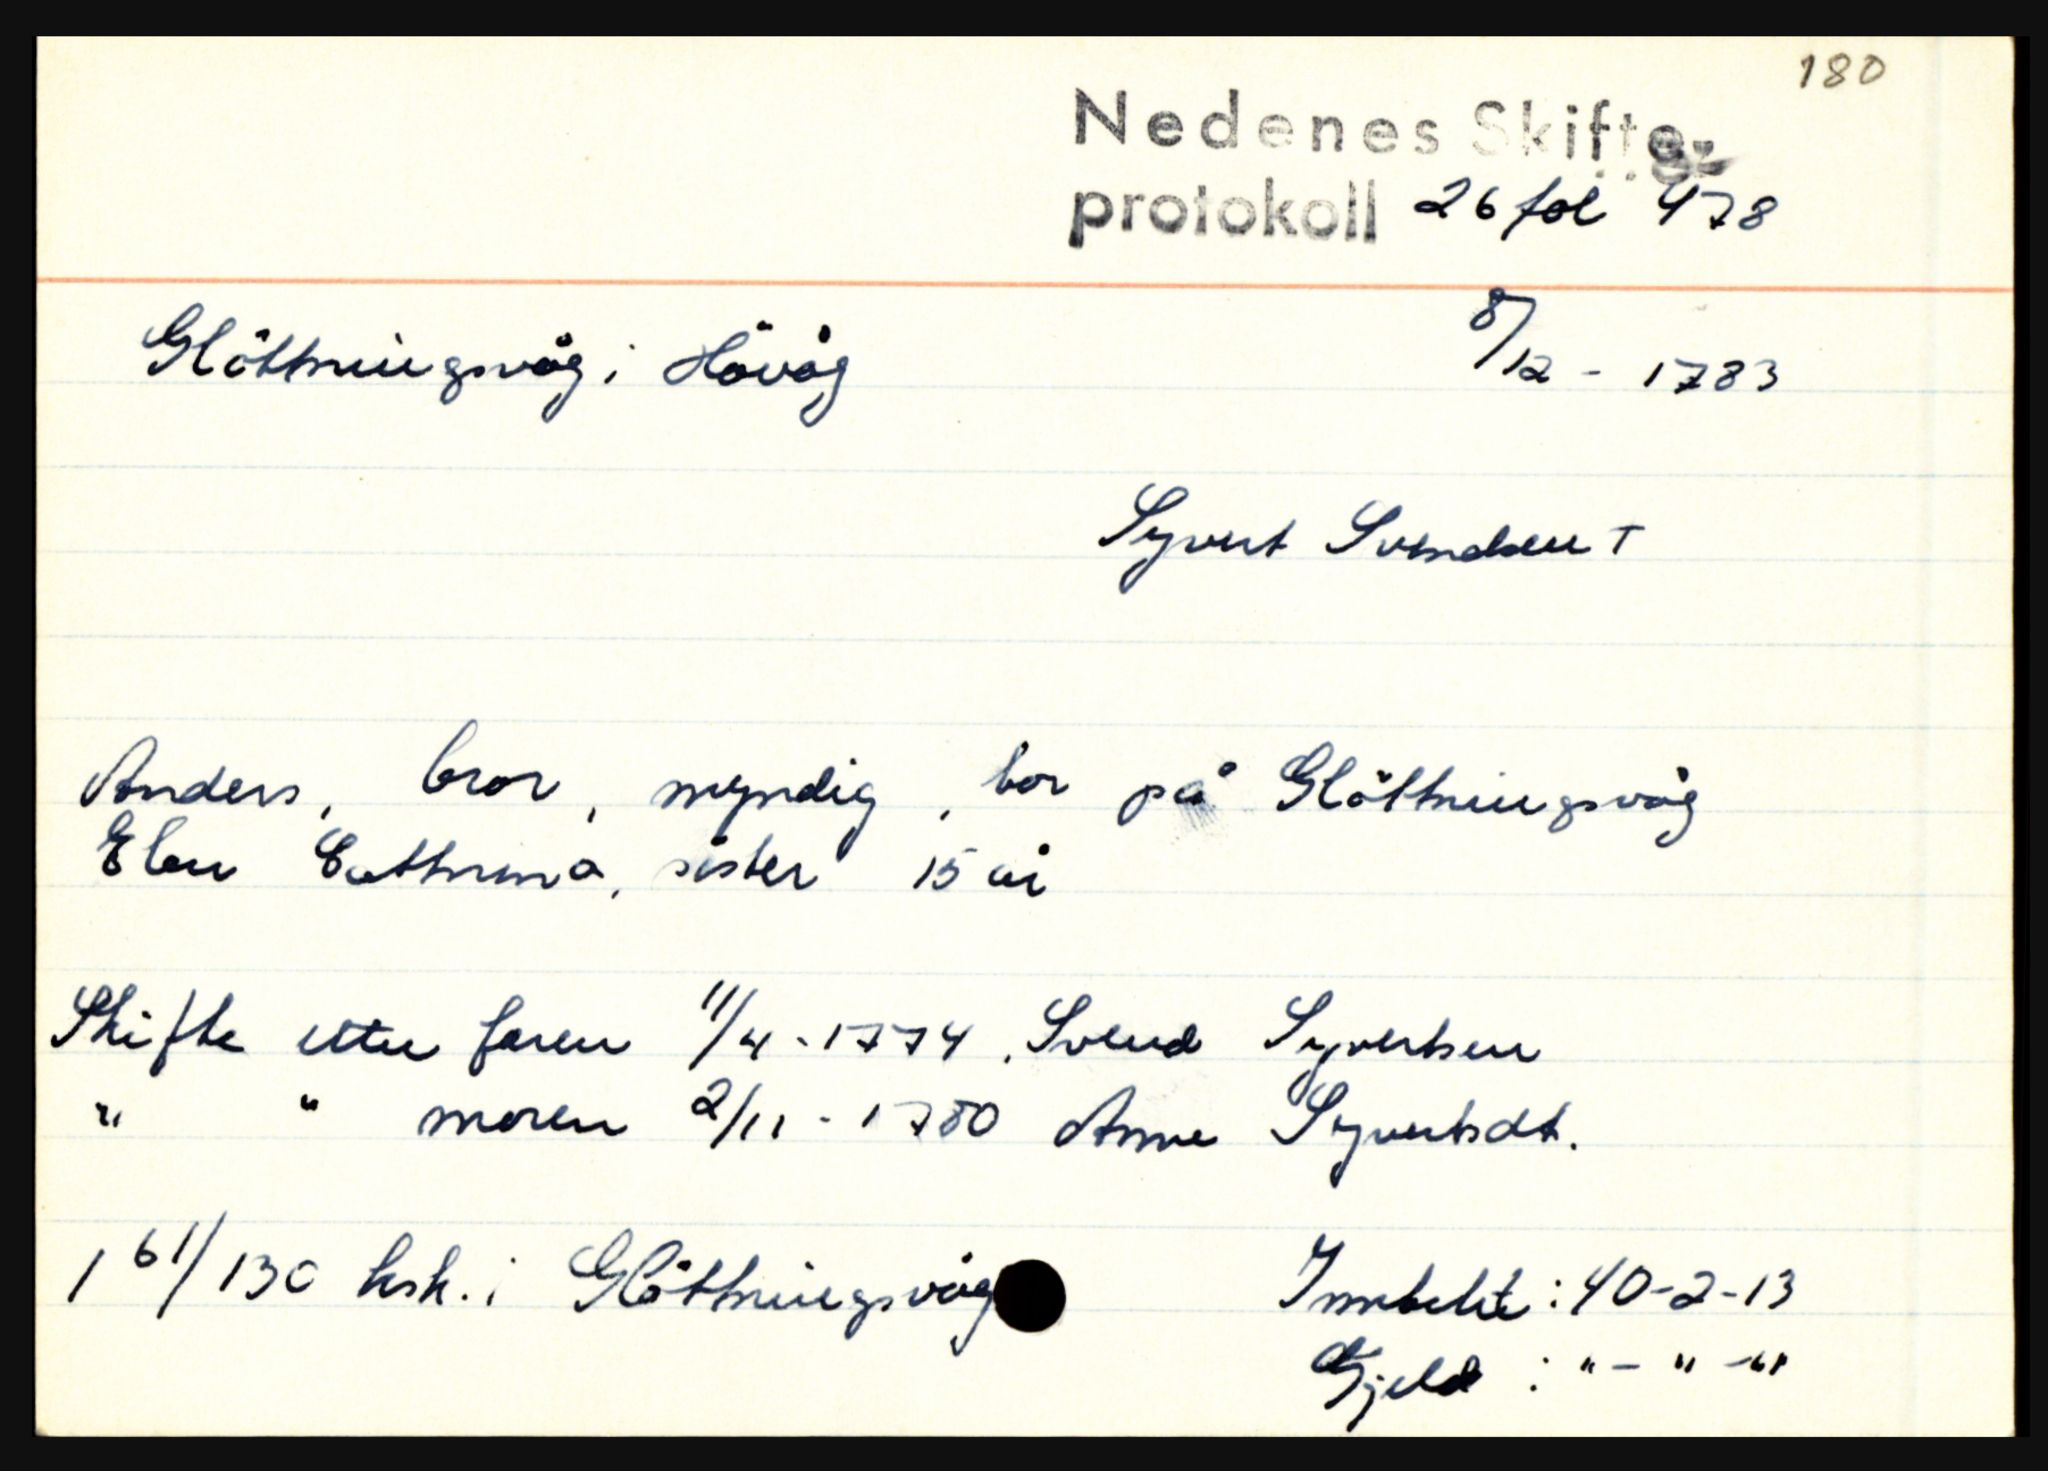 180
Nedenes Skifte-
protokoll 26 fol 478
Glöttningsvåg i Hövåg 8/12 - 1783
Syvert Svendsen †
Anders, bror, myndig, bor på Glöttningsvåg
Elen Cathrina, søster 15 år
Skifte etter faren 11/4 - 1774. Svend Syvertsen
" " moren 2/11 - 1780 Anne Syvertsdt.
1 61/130 ksk. i Glöttningsvåg Innbeholdt: 40-2-13
Gjeld : " - " - "